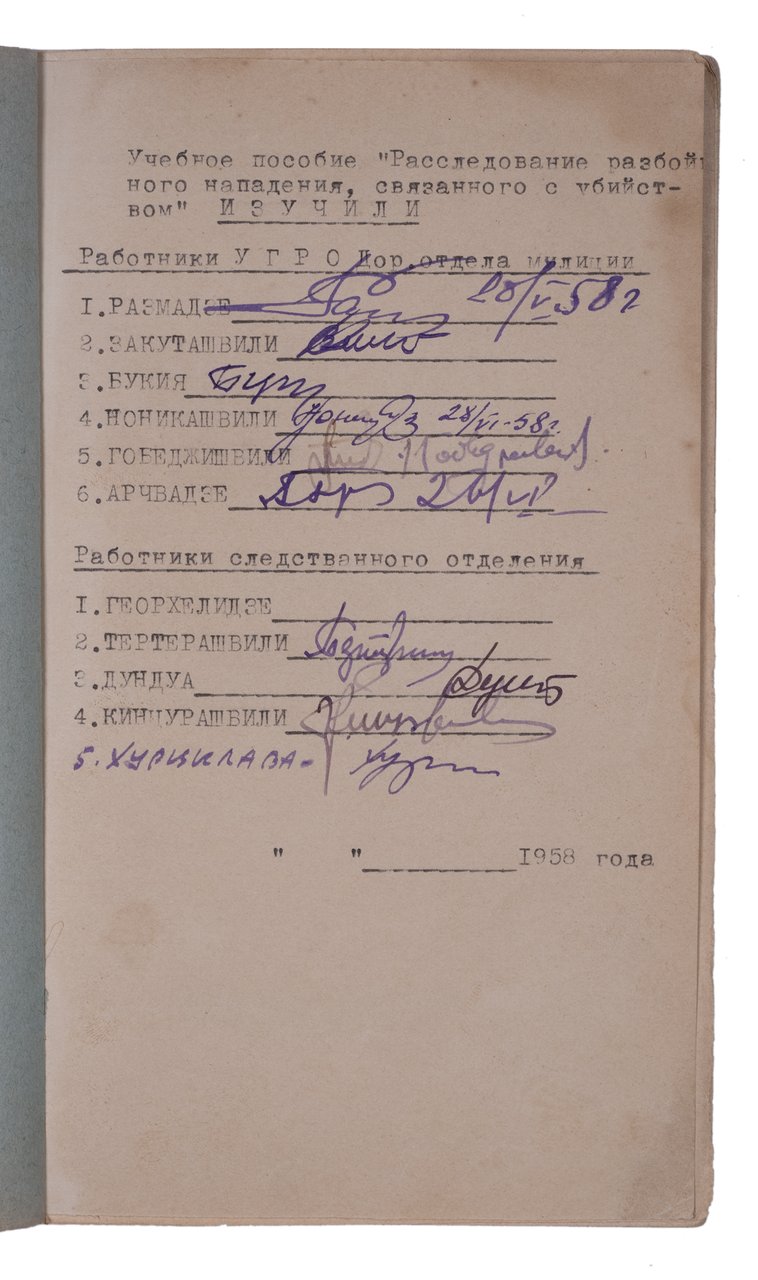 Учебное пособие "Расследование разбой
ного нападения, связанного с убийст-
вом" И З У Ч И Л И
Работники У Г Р О Дор.отдела милиции
I.РАЗМАДЗЕ 28/V.58г
2.ЗАКУТАШВИЛИ
3.БУКИЯ
4.НОНИКАШВИЛИ 28/VI-58г.
5.ГОБЕДЖИШВИЛИ
6.АРЧВАДЗЕ
Работники следственного отделения
I.ГЕОРХЕЛИДЗЕ
2.ТЕРТЕРАШВИЛИ
3.ДУНДУА
4.КИНЦУРАШВИЛИ
5. ХУРЦИЛАВА-
" " I958 года